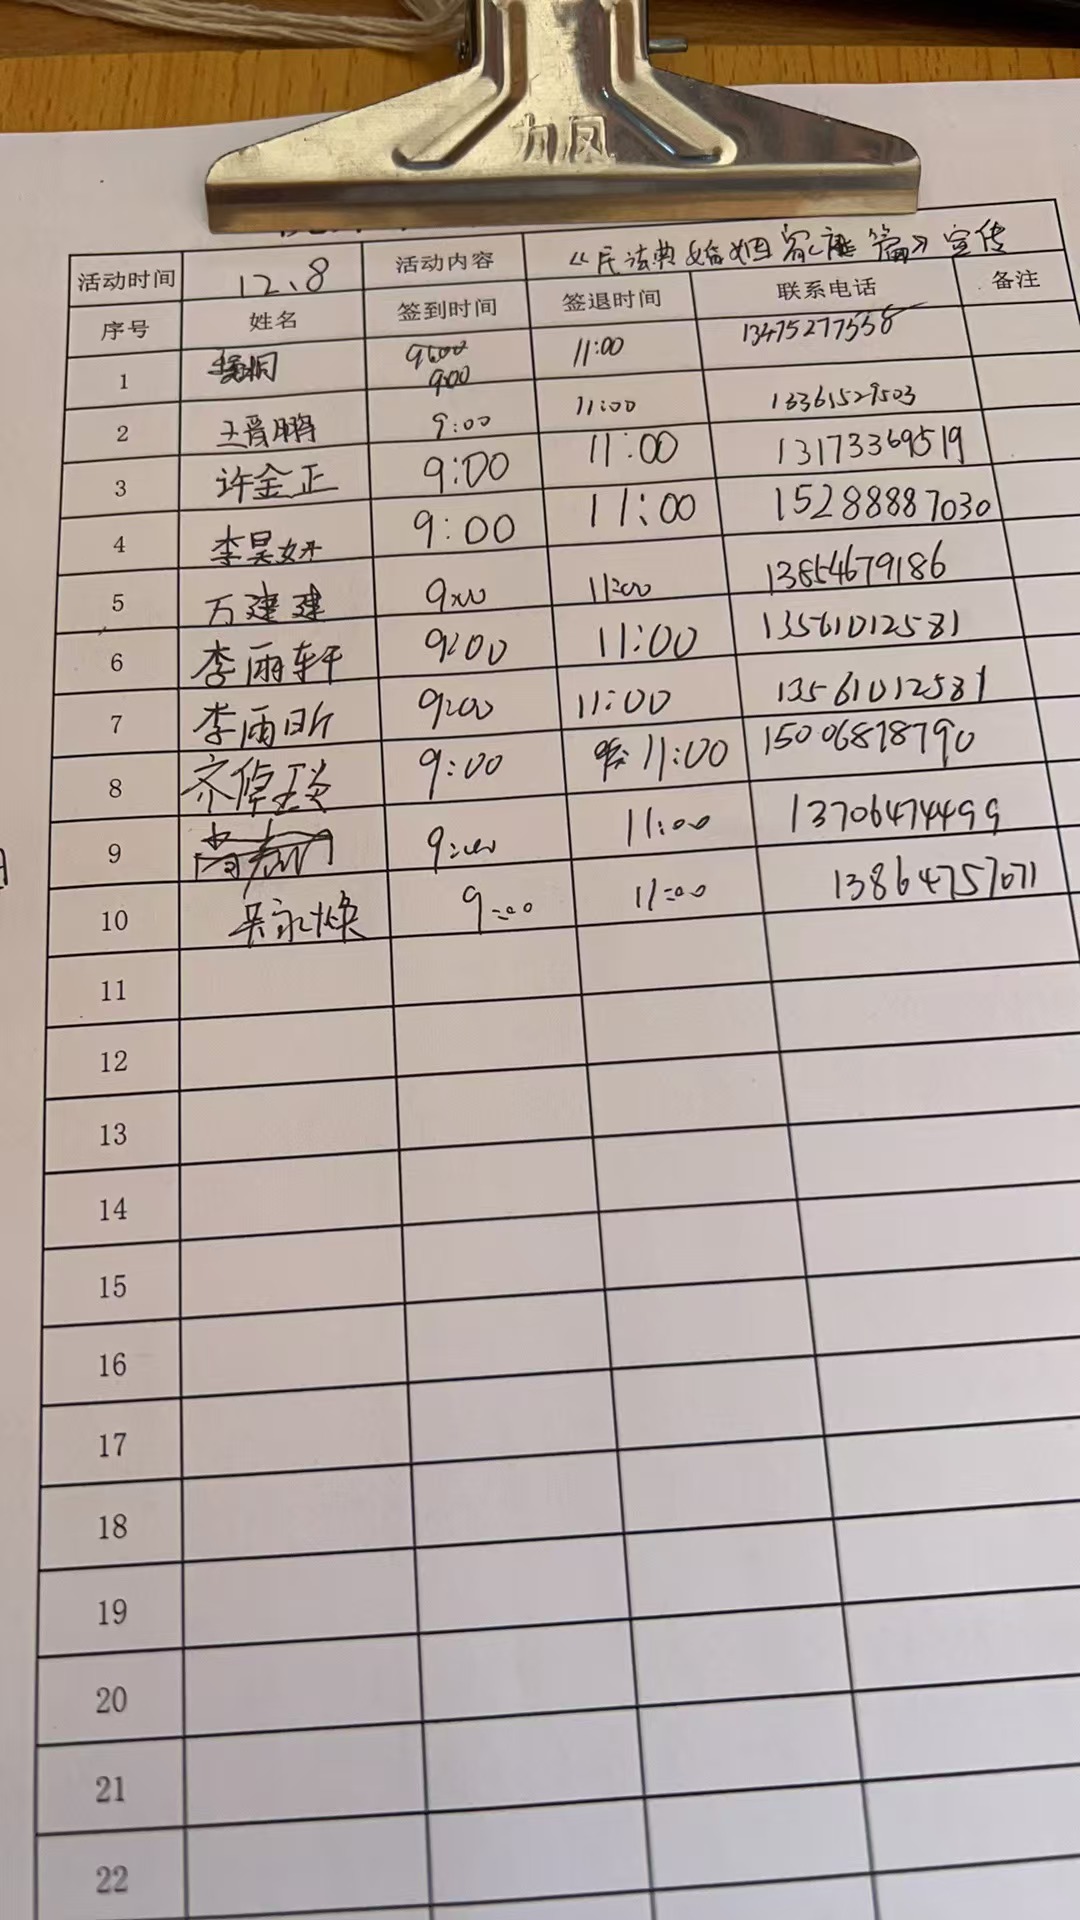 力风
活动时间 12、8 活动内容 《民法典婚姻家庭篇》宣传
序号 姓名 签到时间 签退时间 联系电话 备注
1 9:00 11:00 13475277538
2 王晋鹏 9:00 11:00 13361529503
3 许金正 9:00 11:00 13173369519
4 李昊妍 9:00 11:00 15288887030
5 万建建 9:00 11:00 13854679186
6 李雨轩 9:00 11:00 13561012581
7 李雨昕 9:00 11:00 13561012581
8 齐倬琰 9:00 11:00 15006878790
9 9:00 11:00 13706474499
10 吴永焕 9:00 11:00 13864757071
11
12
13
14
15
16
17
18
19
20
21
22